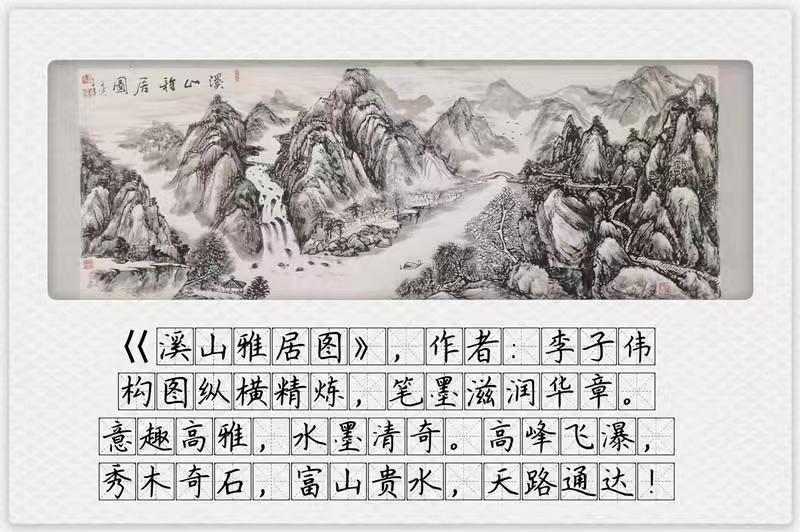 溪山雅居圖
《溪山雅居图》，作者：李子伟
构图纵横精炼，笔墨滋润华章。
意趣高雅，水墨清奇。高峰飞瀑，
秀木奇石，富山贵水，天路通达！